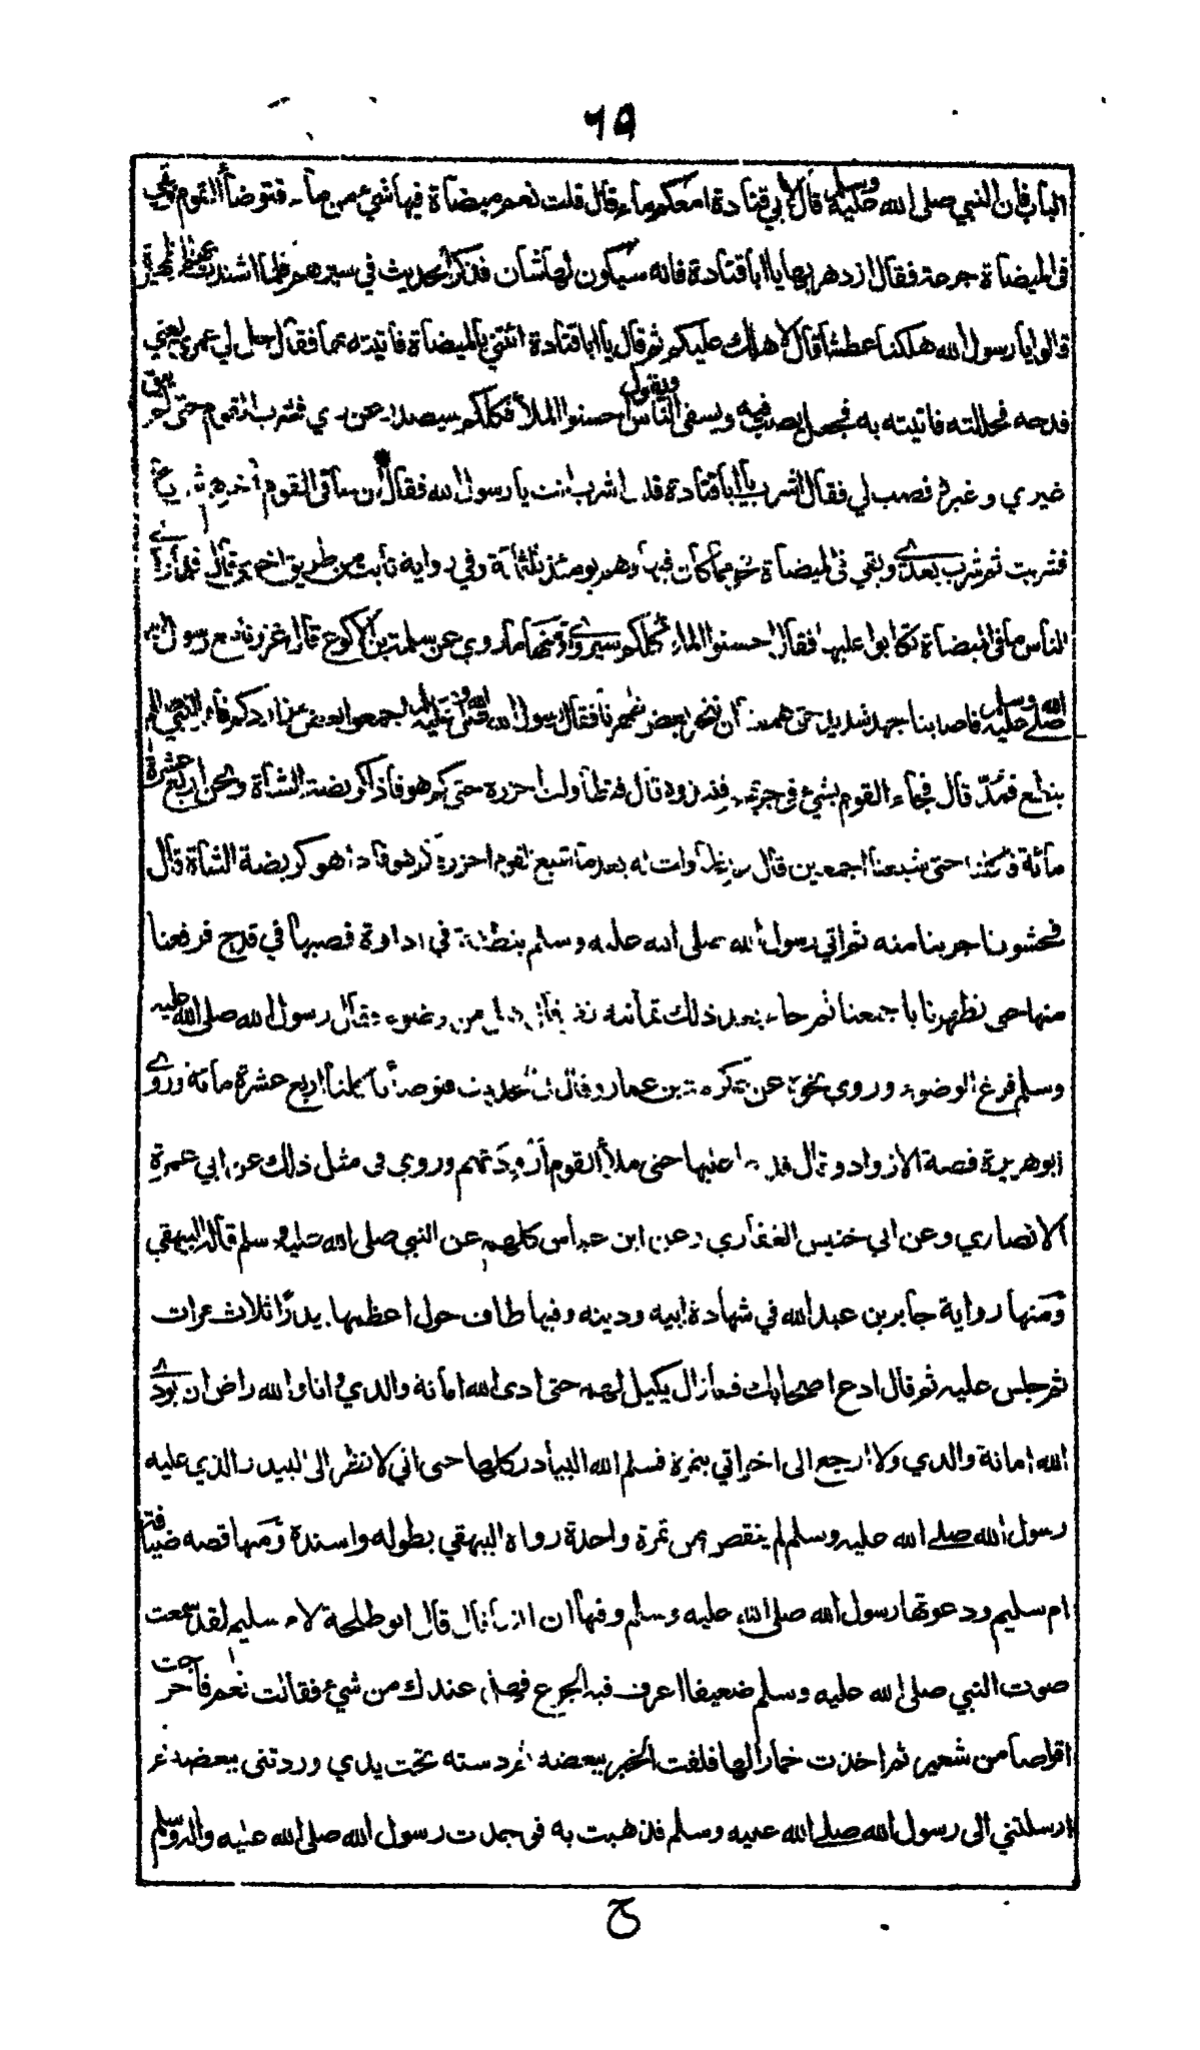 ٦٥
الباب فان النبي صلى الله عليه وسلم قال لابي قتادة امعكم ماء قال قلت نعم ميضاة فيها شئ من ماء فتوضأ القوم وبقي
في الميضاة جرعة فقال ازدهر بها يا ابا قتادة فانه سيكون لها شان فذكر الحديث في سيرهم فلما اشتدت الظهيرة
قالوا يا رسول الله هلكنا عطشا قال لا هلك عليكم ثم قال يا ابا قتادة ائتني بالميضاة فاتيته بها فقال حل لي غمري يعني
قدحه فحللته فاتيته به فجعل يصب فيه ويسقي الناس ويقول احسنوا الملأ فكلكم سيصدر عن ري فشرب القوم حتى لم يبق
غيري وغيره فصب لي فقال اشرب يا ابا قتادة قلت اشرب انت يا رسول الله فقال ان ساقي القوم آخرهم شربا
فشربت ثم شرب بعدي وبقي في الميضاة نحو مما كان فيها وهم يومئذ ثلثمائة وفي رواية ثابت من طريق اخرى قال فلما رأى
الناس ما في الميضاة تكابوا عليها فقال احسنوا الملاء كلكم سيروى ومنها ما روي عن سلمة بن الاكوع قال غزونا مع رسول الله
صلى الله عليه وسلم فاصابنا جهد شديد حتى هممنا ان ننحر بعض ظهرنا فقال رسول الله صلى الله عليه وسلم
بنطع فمد قال فجاء القوم بشئ في جربهم قال فتطاولت احزره حتى كم هو فاذا كربضة الشاة ونحن اربع عشرة
مائة فاكلنا حتى شبعنا اجمعين قال ثم تطاولت له بعد ما شبع القوم احزره كم هو فاذا هو كربضة الشاة قال
فحشونا جربنا منه ثم اتي رسول الله صلى الله عليه وسلم بنطفة في اداوة فصبها في قدح فرفعنا
منها حتى تطهرنا باجمعنا ثم جاء بعد ذلك ثمانية من وضوء فقال رسول الله صلى الله عليه
وسلم فرغ الوضوء وروي نحوه عن عكرمة بن عمار وقال في الحديث فتوضأنا كلنا اربع عشرة مائة وروى
ابو هريرة قصة الازواد وقال فدعا عليها حتى ملأ القوم ازودتهم وروي في مثل ذلك عن ابي عمرة
الانصاري وعن ابي خنيس الغفاري وعن ابن عباس كلهم عن النبي صلى الله عليه وسلم قاله البيهقي
ومنها رواية جابر بن عبد الله في شهادة ابيه ودينه وفيها طاف حول اعظمها بيدرًا ثلاث مرات
ثم جلس عليه ثم قال ادع اصحابك فما زال يكيل لهم حتى ادى الله امانة والدي وانا والله راض ان يودي
الله امانة والدي ولا ارجع الى اخواتي بتمرة فسلم الله البيادر كلها حتى اني لانظر الى البيدر الذي عليه
رسول الله صلى الله عليه وسلم لم ينقص من تمرة واحدة رواه البيهقي بطوله واسنده ومنها قصه ضيافة
ام سليم ودعوتها رسول الله صلى الله عليه وسلم وفيها ان انسا قال قال ابو طلحة لام سليم لقد سمعت
صوت النبي صلى الله عليه وسلم ضعيفا اعرف فيه الجوع فهل عندك من شئ فقالت نعم فاخرجت
اقراصا من شعير ثم اخذت خمارا لها فلفت الخبز ببعضه ثم دسته تحت يدي وردتنى ببعضه ثم
ارسلتني الى رسول الله صلى الله عليه وسلم فذهبت به فوجدت رسول الله صلى الله عليه وآله وسلم
ح